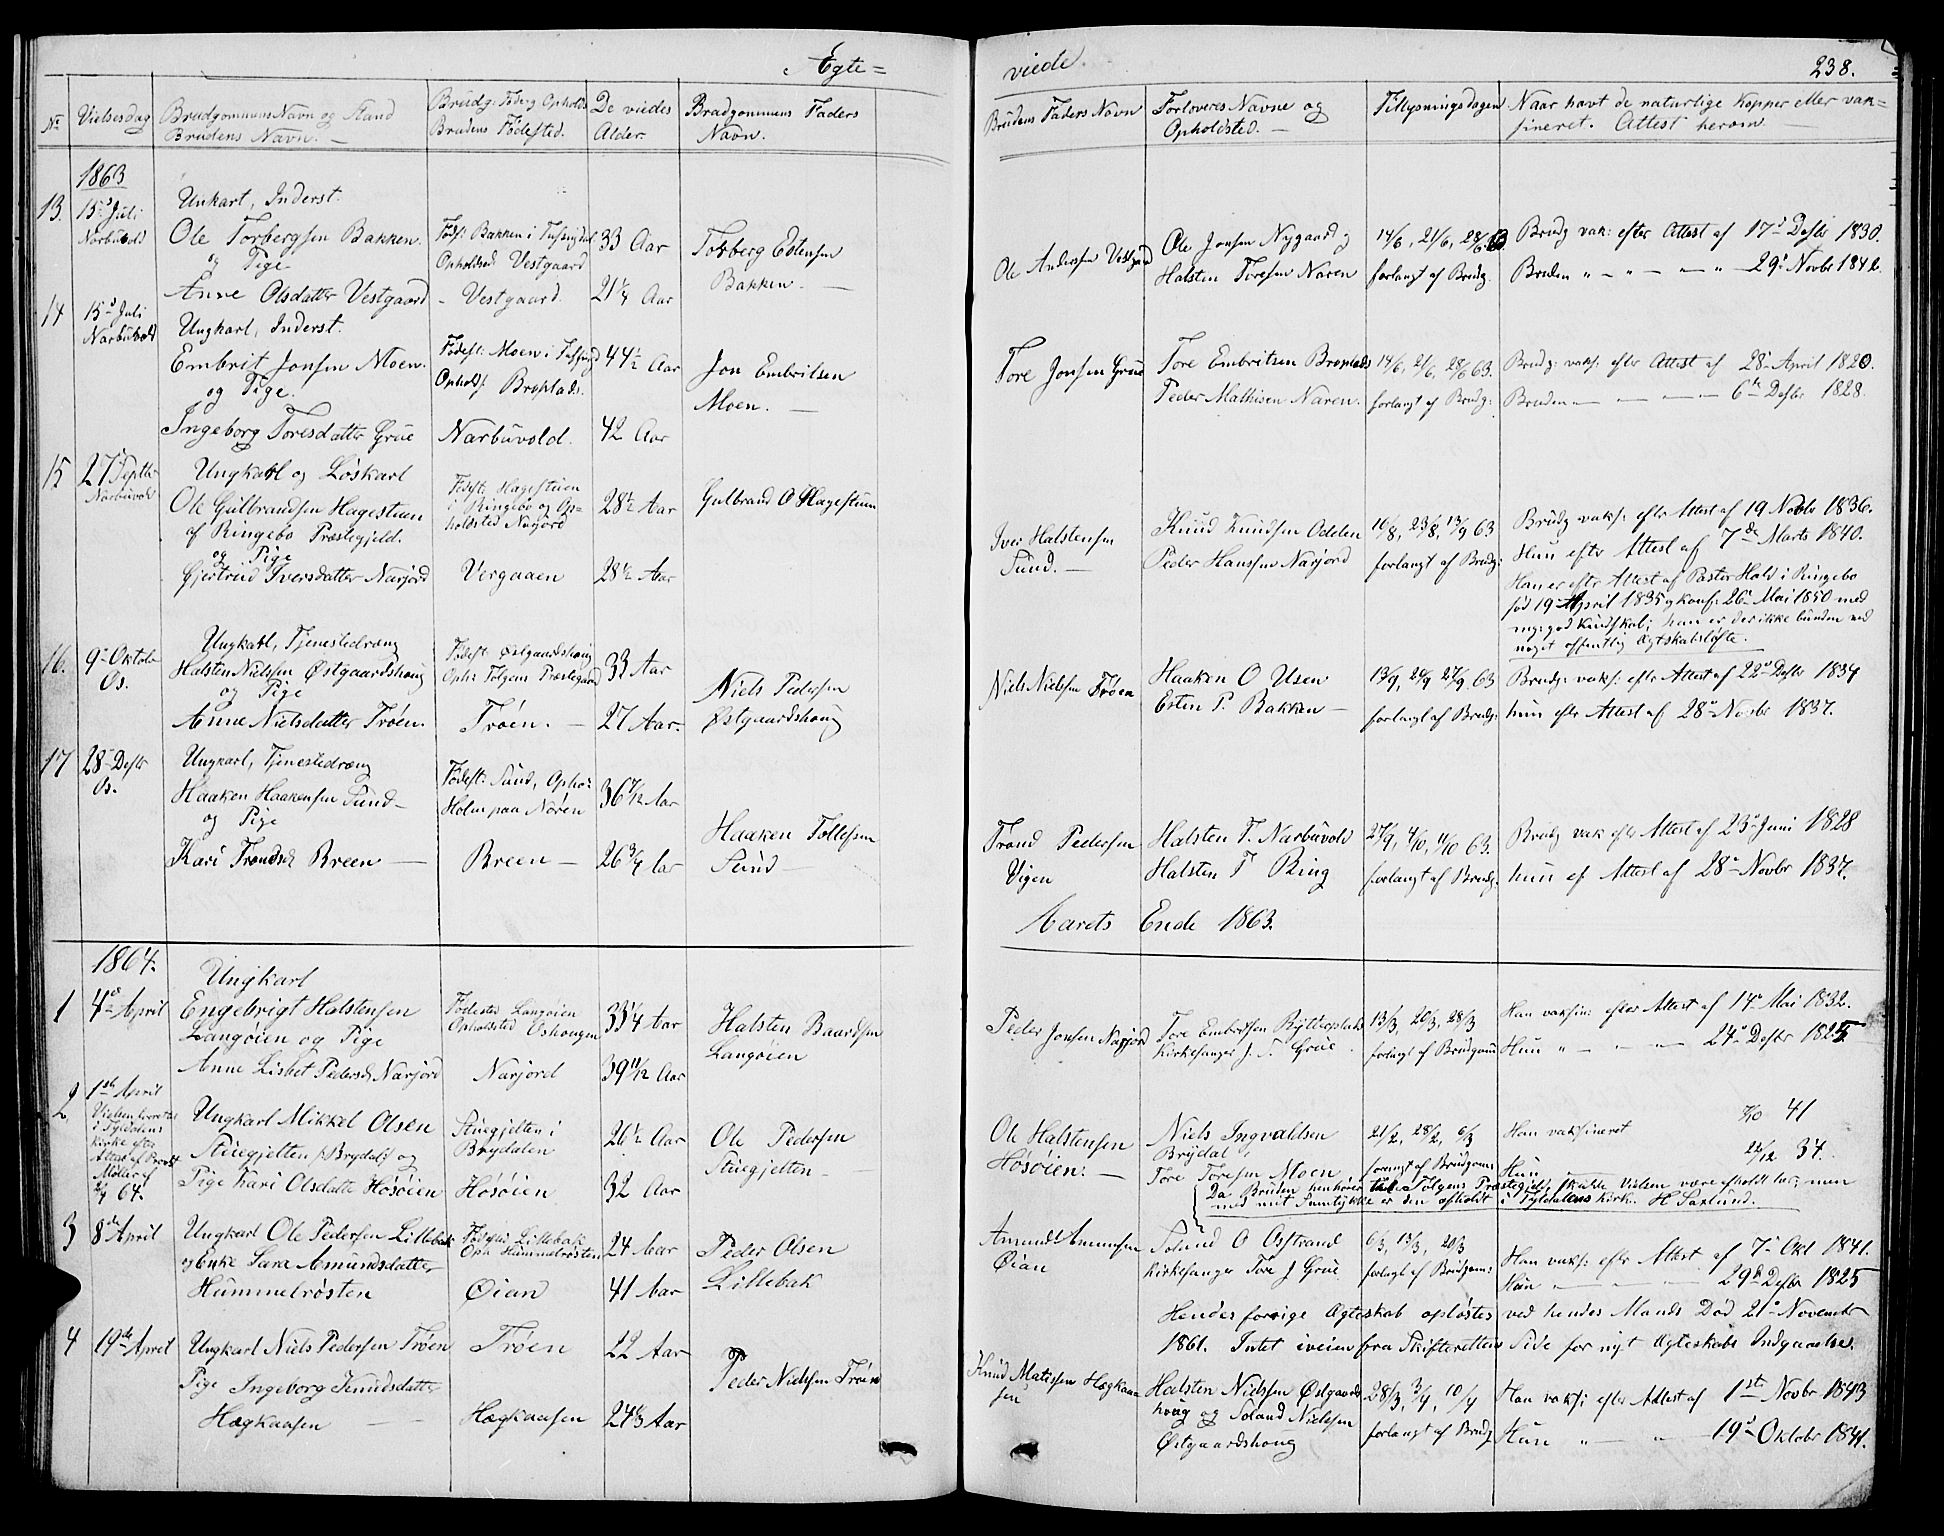 Egte=
No
Vielsesdag
Brudgommens Navn og Stand
Brudens Navn. —
Brudg: Føde og Opholds
Brudens Fødested.
De viedes
Alder.
Brudgommens Faders
Navn.
1863
13.
15d Juli
Narbuvold
Unkarl, Inderst.
Ole Torbergsen Bakken.
og Pige
Anne Olsdatter Vestgaard
Fødst: Bakken i
Opholdsd Vestgaard
- Vestgaard.
33 Aar
21¼ Aar
Torberg Estensen
Bakken. —
14
15d Juli
Narbuvold
Ungkarl, Inderst.
Embrit Jonsen Moen.
og Pige.
Ingeborg Toresdatter Grue
Fødest: Moen i
Opholds:
Narbuvold.
44½ Aar
42 Aar
Jon Embritsen
Moen. —
15
27d Septbr
Narbuvold
Ungkarl og Løskarl
Ole Gulbrandsen Hagestuen
af Ringebo Præstegjeld.
og Pige
Gjertrud Iversdatter Narjord
Fødest: Hagestuen
i Ringebo og Op=
holdsted Narjord
Vergaaen
28½ Aar
28½ Aar
Gulbrand O Hagestuen
16.
9d Oktobr
Os.
Ungkarl, Tjenestedreng
Halsten Nielsen Østgaardshoug
og Pige
Anne Nielsdatter Trøen.
Fødest: Østgaardshoug
Oph: Tolgens Præstegaard
Trøen. —
33 Aar
27 Aar.
Niels Pedersen
Østgaardshoug
17
28d Desbr
Os.
Ungkarl, Tjenestedreng
Haaken Haakensen Sund —
og Pige
Kari Trondsd Breen —
Fødest: Sund, Opho:
Holm paa Nøren
Breen —
36 7/12 Aar
26 3/4 Aar
Haaken Tollefsen
Sund —
1864.
1
4de April
Ungkarl
Engebrigt Halstensen
Langøien og Pige
Anne Lisbet Pedersd Narjord
Fødested Langøien
Opholdsted Oshougen
Narjord
33¼ Aar
39 11/12 Aar
Halsten Baardsen
Langøien
2
1ste April
Vielsen forrettet
i Tyldalens
Kirke efter
Attest af Provst
Møller af
2/4 64.
Ungkarl Mikkel Olsen
Stuegjelten i Brydal og
Pige Kari Olsdatte Høsøien
Stuegjelten i
Brydalen
Høsøien
26½ Aar
32 Aar
Ole Pedersen
Stuegjelten
3
8de April
Ungkarl Ole Pedersen Lillebak
og Enke Sara Amundsdatter
Hummelrøsten
Fødested Lillebak
Oph Hummelrøsten
Øian
24 Aar
41 Aar
Peder Olsen
Lillebak
4
19de April
Ungkarl Niels Pedersen Trøen
Pige Ingeborg Knudsdatter
Hægkaasen —
Trøen
Hægkaasen
22 Aar
24⅓ Aar
Peder Nielsen Trøen
viede.
238.
Brudens Faders Navn
Forloveres Navne og
Opholdsted. —
Tillysningsdagen
Naar havt de naturlige Kopper eller vak=
sineret. Attest herom —
Ole Andersen Vestgaard
Ole Jonsen Nygaard og
Halsten Toresen Naren
14/6, 21/6, 28/6 63
forlangt af Brudg.
Brudg vak: efter Attest af 17d Desbr 1830.
Bruden " — " — — " — 29d Novbr 1842.
Tore Jonsen Grue
Tore Embritsen
Peder Mathisen Naren.
14/6, 21/6, 28/6 63.
forlangt af Brudg:
Brudg: vaks: efter Attest af 28d April 1820.
Bruden — — — — — 6te Desbr 1828.
Iver Halstensen
Sund. —
Knud Knudsen Odden
Peder Hansen Narjord
16/8, 23/8, 13/9 63
forlangt af Brudg:
Brudg vaks: efter Attest af 19 Novbr 1836.
Hun efter Attest af 7de Marts 1840.
Han er efter Attest af Pastor Hald i Ringebo
fød 19d April 1835 og konf: 26d Mai 1850 med
meget god Kundskab; han er der ikke bunden ved
noget offentlig Ægteskabsløfte.
Niels Nielsen Trøen
Haaken O Usen
Esten P. Bakken —
13/9, 20/9 27/9 63
forlangt af Brudg:
Brudg: vaks: efter Attest af 22d Desbr 1834
hun efter Attest af 28d Novbr 1837.
Trond Pedersen
Vigen
Halsten T. Narbuvold
Halsten T Ring
27/9, 4/10, 11/10 63.
forlangt af Brudg:
Brudg vak efter Attest af 23d Juni 1828
hun ef Attest af 28d Novbr 1837.
Aarets Ende 1863.
Peder Jonsen Narjord
Tore Embritsen Rytterplads
Kirkesanger J. T. Grue.
13/3, 20/3, 28/3
forlangt af Brudgom
Han vaksin: efter Attest af 14d Mai 1832.
Hun " — " — 24d Desbr 1825
Ole Halstensen
Høsøien. —
Niels Ingvaldsen
Brydal
Tore Toresen Moen
21/2, 28/2, 6/3
forlangt af Brudgom
Han vaksineret
/10 41
Hun
22/12 34.
Da Bruden henhører til Tolgens Præstegjeld, skulde Vielsen være afholdt her, men
med mit Samtykke er den afholdt i Tyldalens Kirke. H Saxlund.
Amund Amundsen
Øian
O Osstrand
Kirkesanger Tore J Grue
6/3, 13/3, 20/3
forlagt af Brudgom:
Han vaks: efter Attest af 7d Okt 1841.
Hun — — — 29de Desbr 1825
Hendes forrige Ægteskab opløstes ved hendes Mands Død 21d November
1861. Intet iveien fra Skifterettens Side for nyt Ægteskabs Indgaaelse.
Knud Matissen Hægkaa=
sen
Halsten Nielsen Østgaards
houg og Nielsen
Østgaardshoug
28/3, 3/4, 10/4
forlangt af Brudg
Han vaks: efter Attest af 1ste Novbr 1843
Hun " — " — 19d Oktobr 1841.